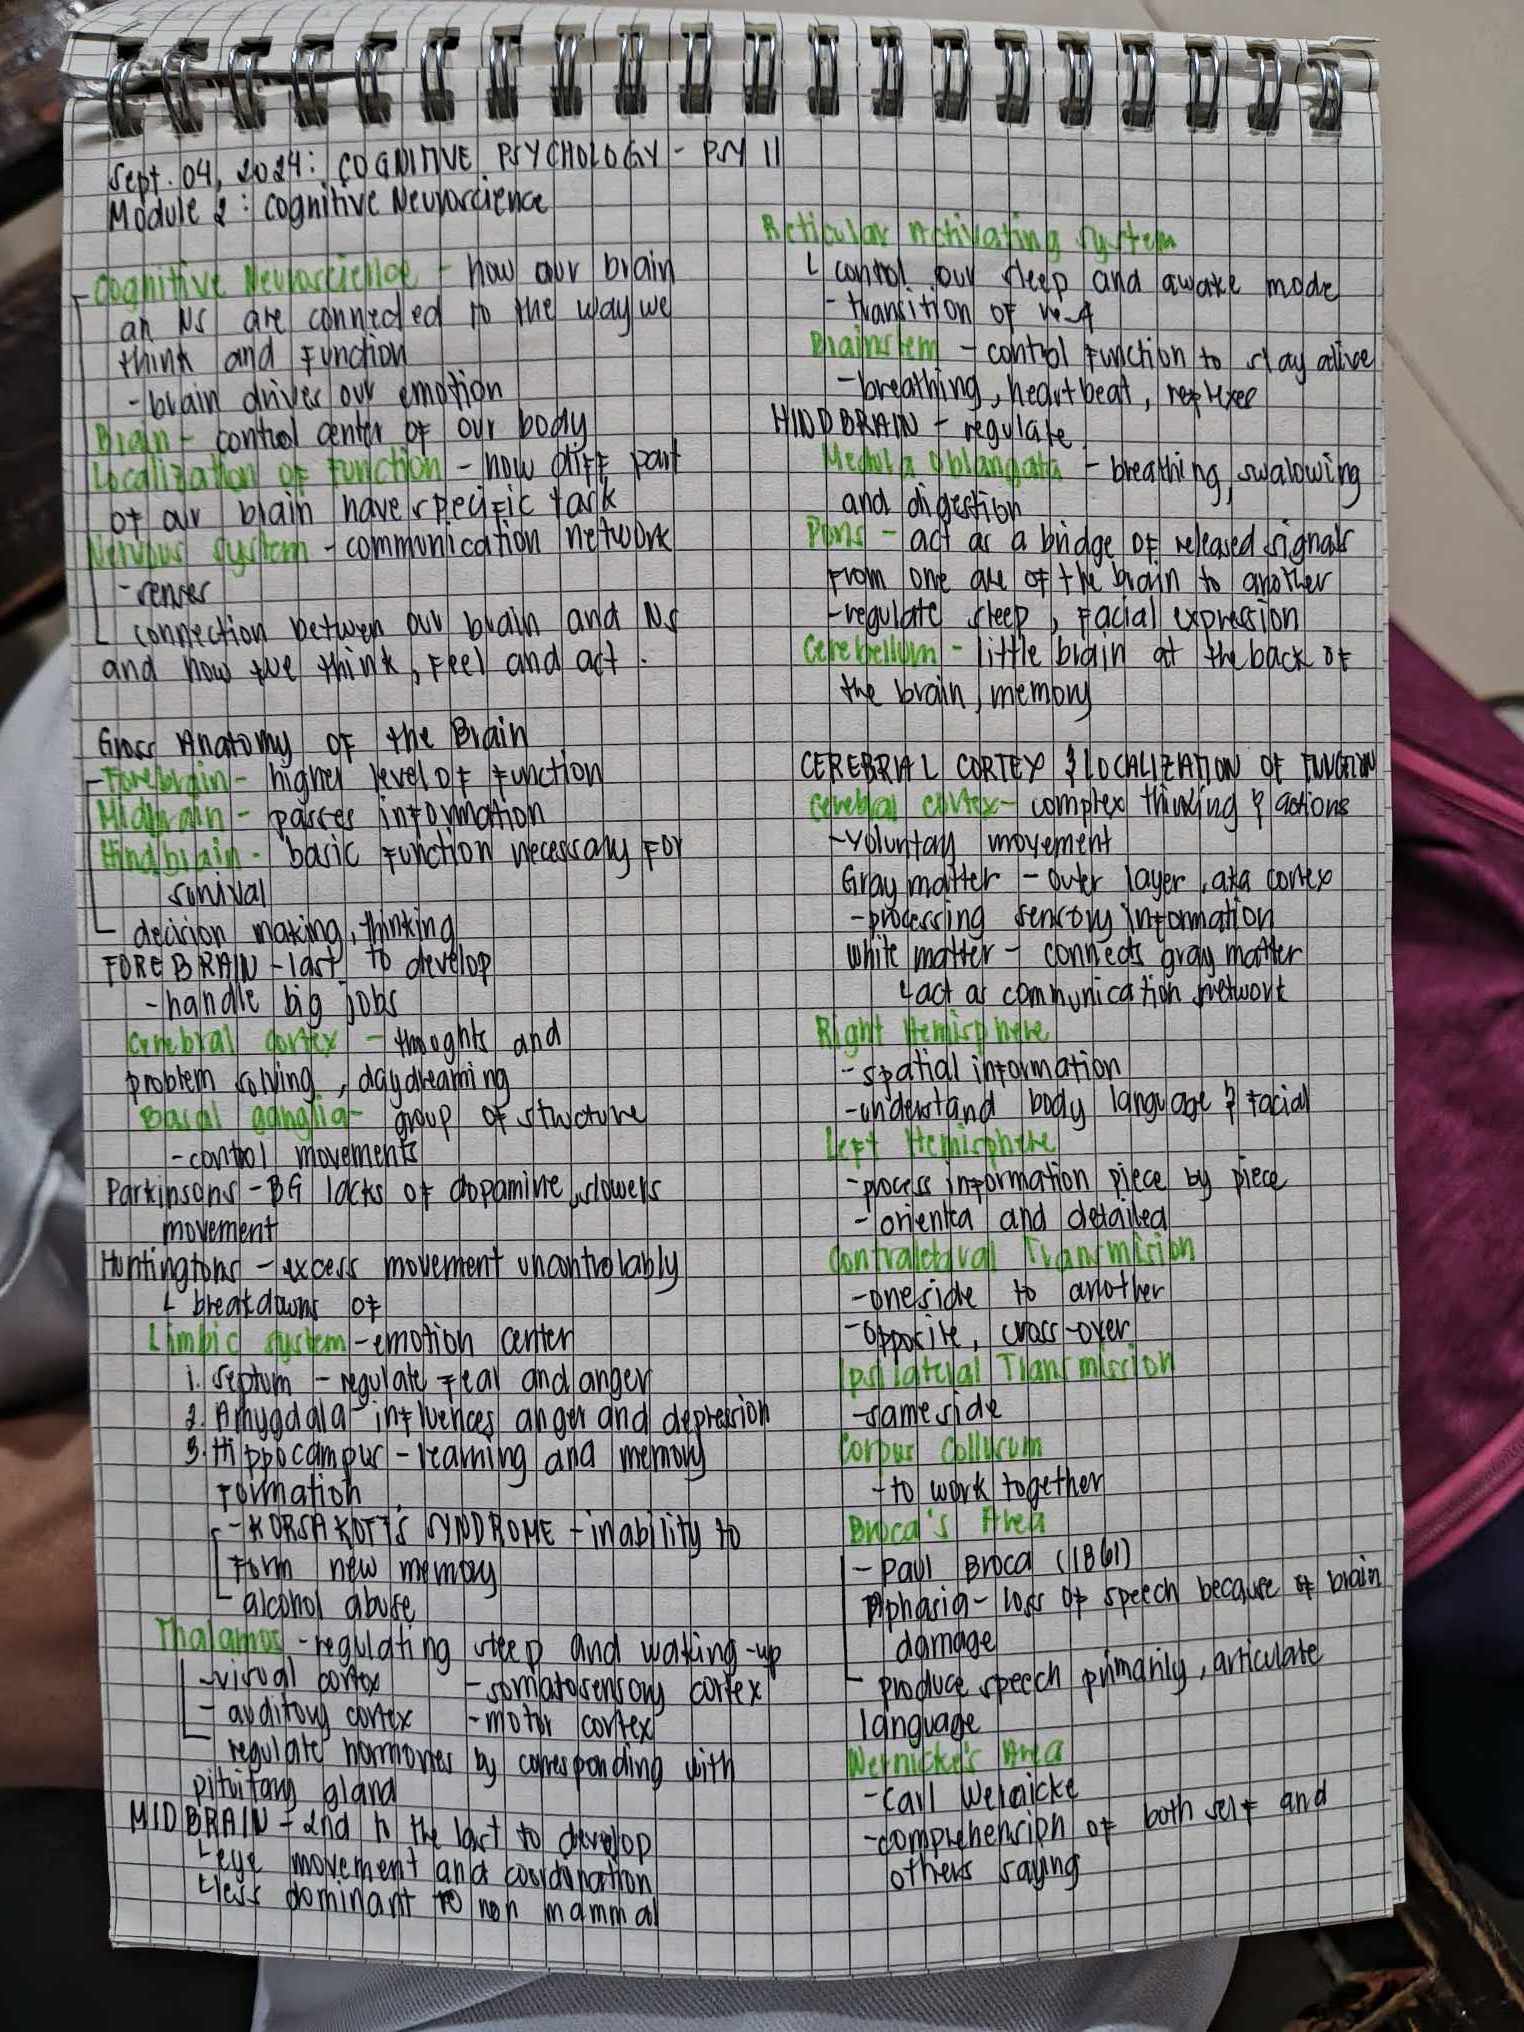 Sept. 04, 2024: COGNITIVE PSYCHOLOGY - PSY 11
Module 2 : Cognitive Neuroscience
Cognitive Neuroscience - how our brain
an NS are connected to the way we
think and function
- brain drives our emotion
Brain - control center of our body
Localization of Function - how diff part
of our brain have specific task
Nervous system - communication network
- senses
connection betwen our brain and NS
and how we think, feel and act.
Gross Anatomy of the Brain
- Forebrain - higher level of function
Midbrain - passes information
Hindbrain - basic function necessary for
survival
decision making, thinking
FOREBRAIN - last to develop
- handle big jobs
Cerebral cortex - thoughts and
problem solving, daydreaming
Basal ganglia - group of structure
- control movements
Parkinsons - BG lacks of dopamine, slowers
movement
Huntingtons - excess movement uncontrolably
breakdowns of
Limbic system - emotion center
1. Septum - regulate fear and anger
2. Amygdala - influences anger and depression
3. Hippocampus - learning and memory
formation
- KORSAKOFF'S SYNDROME - inability to
form new memory
- alcohol abuse
Thalamus - regulating sleep and waking-up
- visual cortex - somatosensory cortex
- auditory cortex - motor cortex
regulate hormones by corresponding with
pituitary gland
MIDBRAIN - 2nd to the last to develop
eye movement and coordination
less dominant to non mammal
Reticular Activating System
control our sleep and awake mode
- transition of
Brainstem - control function to stay alive
- breathing, heartbeat, reflexes
HINDBRAIN - regulate
Medulla Oblangata - breathing, swalowing
and digestion
Pons - act as a bridge of released signals
from one are of the brain to another
- regulate sleep, facial expression
Cerebellum - little brain at the back of
the brain, memory
CEREBRIAL CORTEX & LOCALIZATION OF FUNCTION
Cerebral cortex - complex thinking & actions
- voluntary movement
Gray matter - outer layer, aka cortex
- processing sensory information
White matter - connects gray matter
act as communication network
Right Hemisphere
- spatial information
- understand body language & facial
Left Hemisphere
- process information piece by piece
- and detailed
Contralateral Transmission
- one side to another
- opposite, cross-over
Ipsilaterial Transmission
- same side
Corpus Collusum
- to work together
Broca's Area
- Paul Broca (1861)
Aphasia - loss of speech because of brain
damage
- produce speech primarily, articulate
language
Wernicke's Area
- Carl Wernicke
- comprehension of both self and
others saying